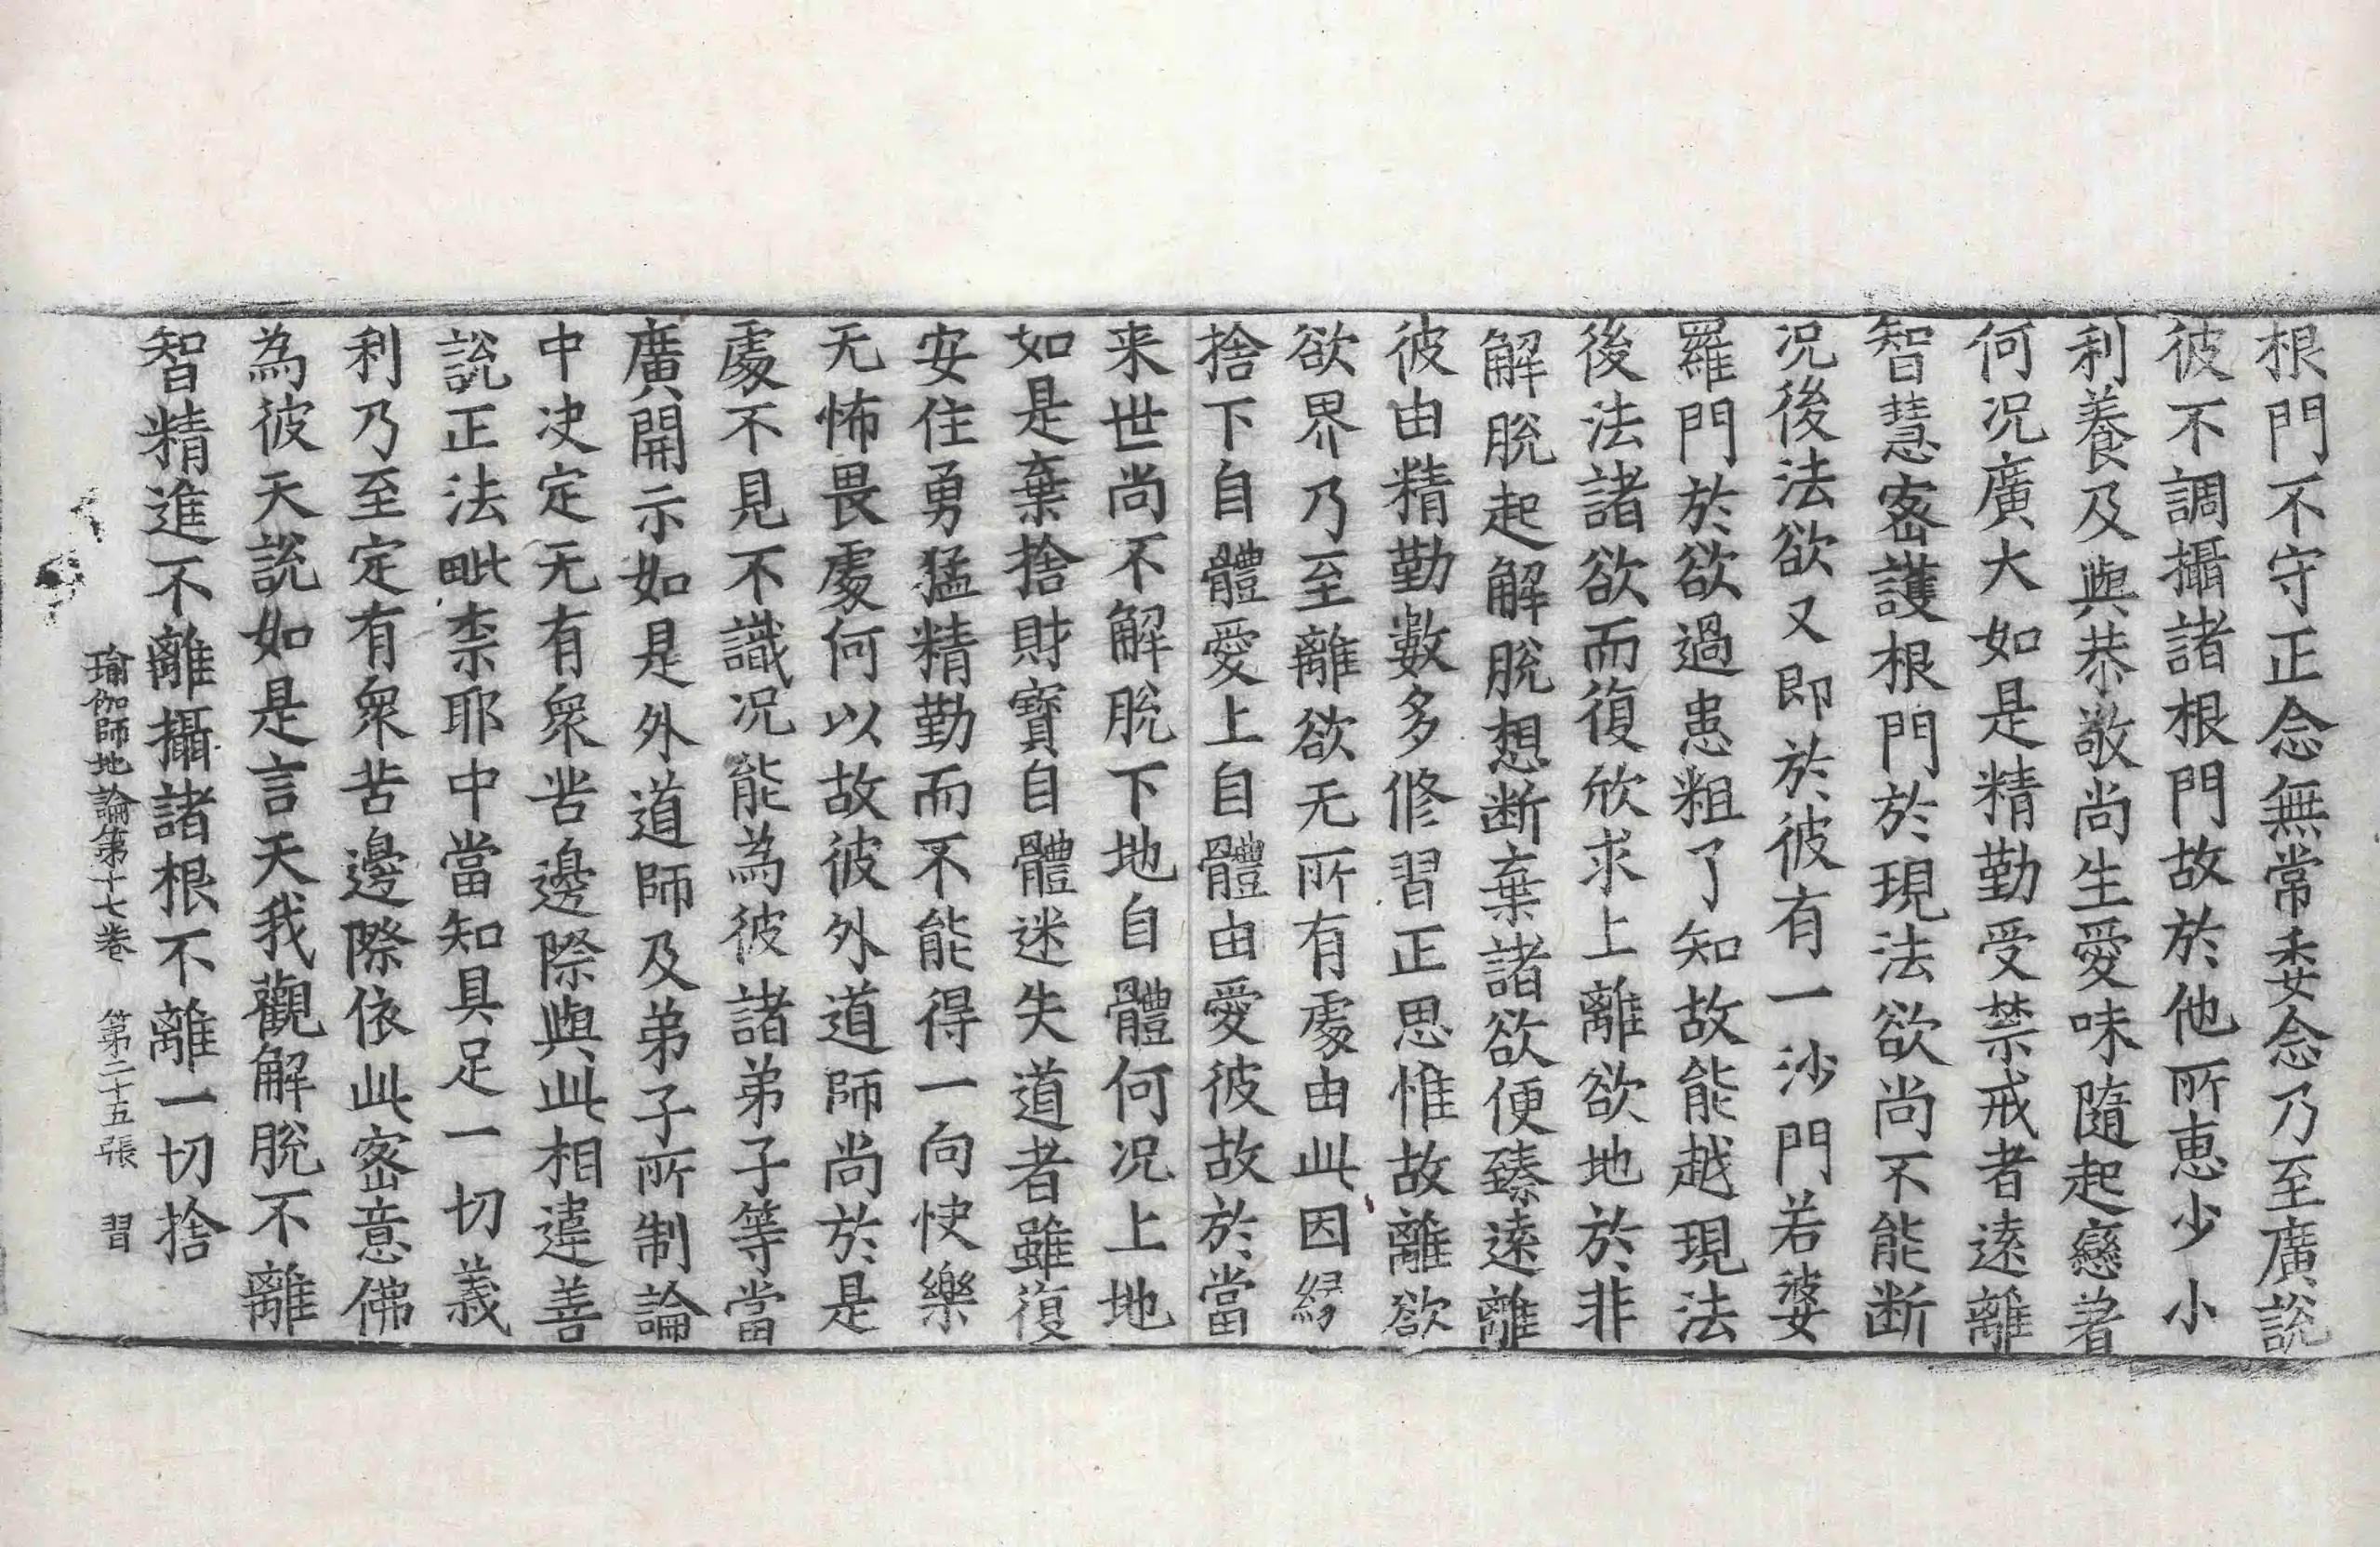 根門不守正念無常委念乃至廣說
彼不調攝諸根門故於他所恵少小
利養及與恭敬尚生愛味隨起戀著
何况廣大如是精勤受禁戒者遠離
智慧密護根門於現法欲尚不能断
况後法欲又即於彼有一沙門若婆
羅門於欲過患粗了知故能越現法
後法諸欲而復欣求上離欲地於非
解脫起解脫想断棄諸欲便臻遠離
彼由精勤數多修習正思惟故離欲
欲界乃至離欲无所有處由此因縁
捨下自體愛上自體由愛彼故於當
来世尚不解脫下地自體何况上地
如是棄捨財寶自體迷失道者雖復
安住勇猛精勤而不能得一向快樂
无怖畏處何以故彼外道師尚於是
處不見不識况能為彼諸弟子等當
廣開示如是外道師及弟子所制論
中决定无有衆苦邊際與此相違善
說正法毗柰耶中當知具足一切義
利乃至定有衆苦邊際依此密意佛
為彼天說如是言天我觀解脫不離
智精進不離攝諸根不離一切捨
瑜伽師地論第十七卷 第二十五張 習